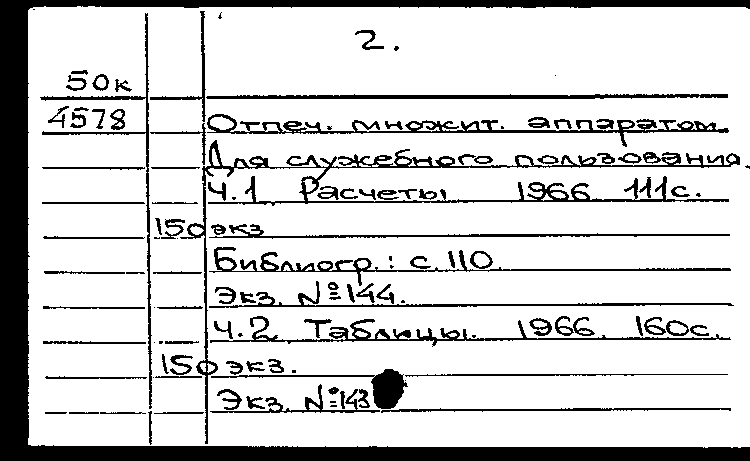 2.
50к
4578 Отпеч. множит. аппаратом.
Для служебного пользования.
Ч.1 Расчеты 1966 111с.
150 экз
Библиогр.: с. 110.
Экз. №144.
Ч.2 Таблицы. 1966. 160с.
150 экз.
Экз. №143